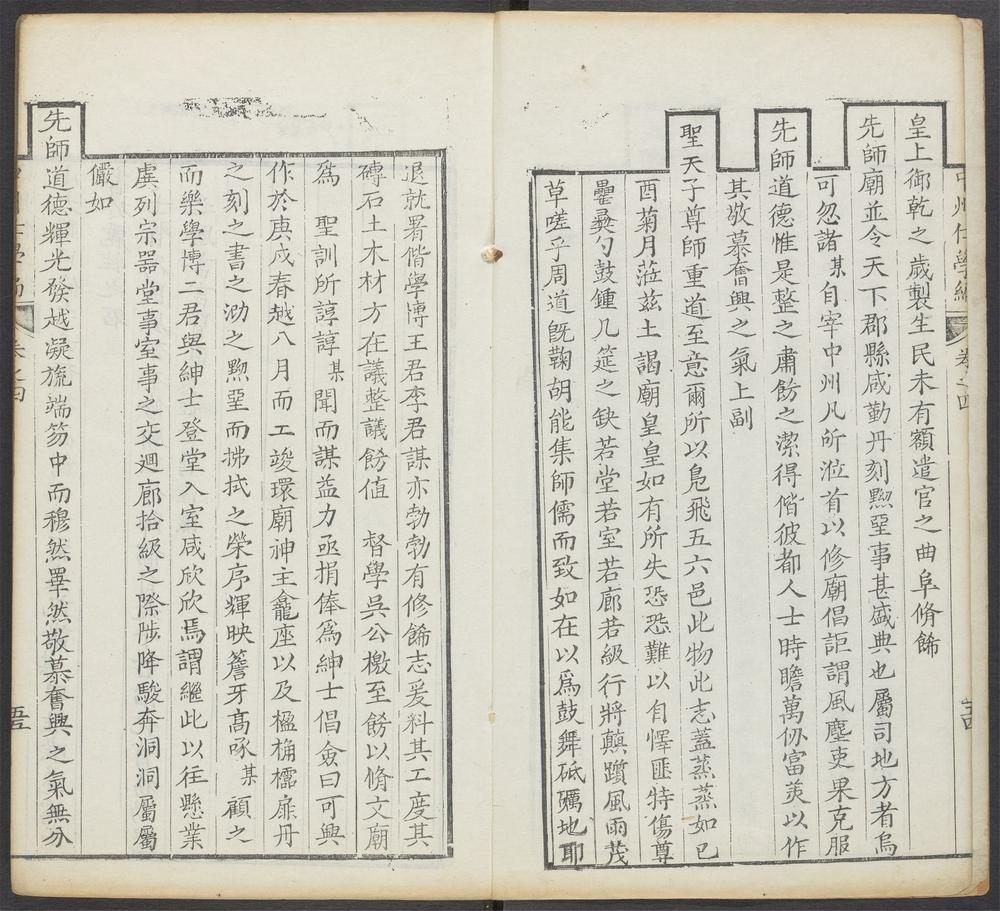 中州仕學編 卷之四
皇上御乾之歲製生民未有額遣官之曲阜脩餙
先師廟並令天下郡縣咸勤丹刻黝堊事甚盛典也屬司地方者烏
可忽諸某自宰中州凡所涖首以修廟倡詎謂風塵吏果克服
先師道德惟是整之肅飭之潔得偕彼都人士時瞻萬仞富美以作
其敬慕奮興之氣上副
聖天子尊師重道至意爾所以鳧飛五六邑此物此志蓋蒸蒸如已
酉菊月涖茲土謁廟皇皇如有所失恐恐難以自懌匪特傷尊
罍彝勺鼓鍾几筵之缺若堂若室若廊若級行將蘋躓風雨茂
草嗟乎周道旣鞠胡能集師儒而致如在以爲鼓舞砥礪地耶
退就署偕學博王君李君謀亦勃勃有修餙志爰料其工度其
磚石土木材方在議整議飭值 督學吳公檄至飭以脩文廟
爲 聖訓所諄諄某聞而謀益力亟捐俸爲紳士倡僉曰可興
作於庚戌春越八月而工竣環廟神主龕座以及楹桷櫺扉丹
之刻之書之泐之黝堊而拂拭之榮序輝映簷牙高啄某顧之
而樂學博二君與紳士登堂入室咸欣欣焉謂繼此以往懸業
虡列宗器堂事室事之交迴廊拾級之際陟降駿奔洞洞屬屬
儼如
先師道德輝光發越凝旒端笏中而穆然睪然敬慕奮興之氣無分
卷之四